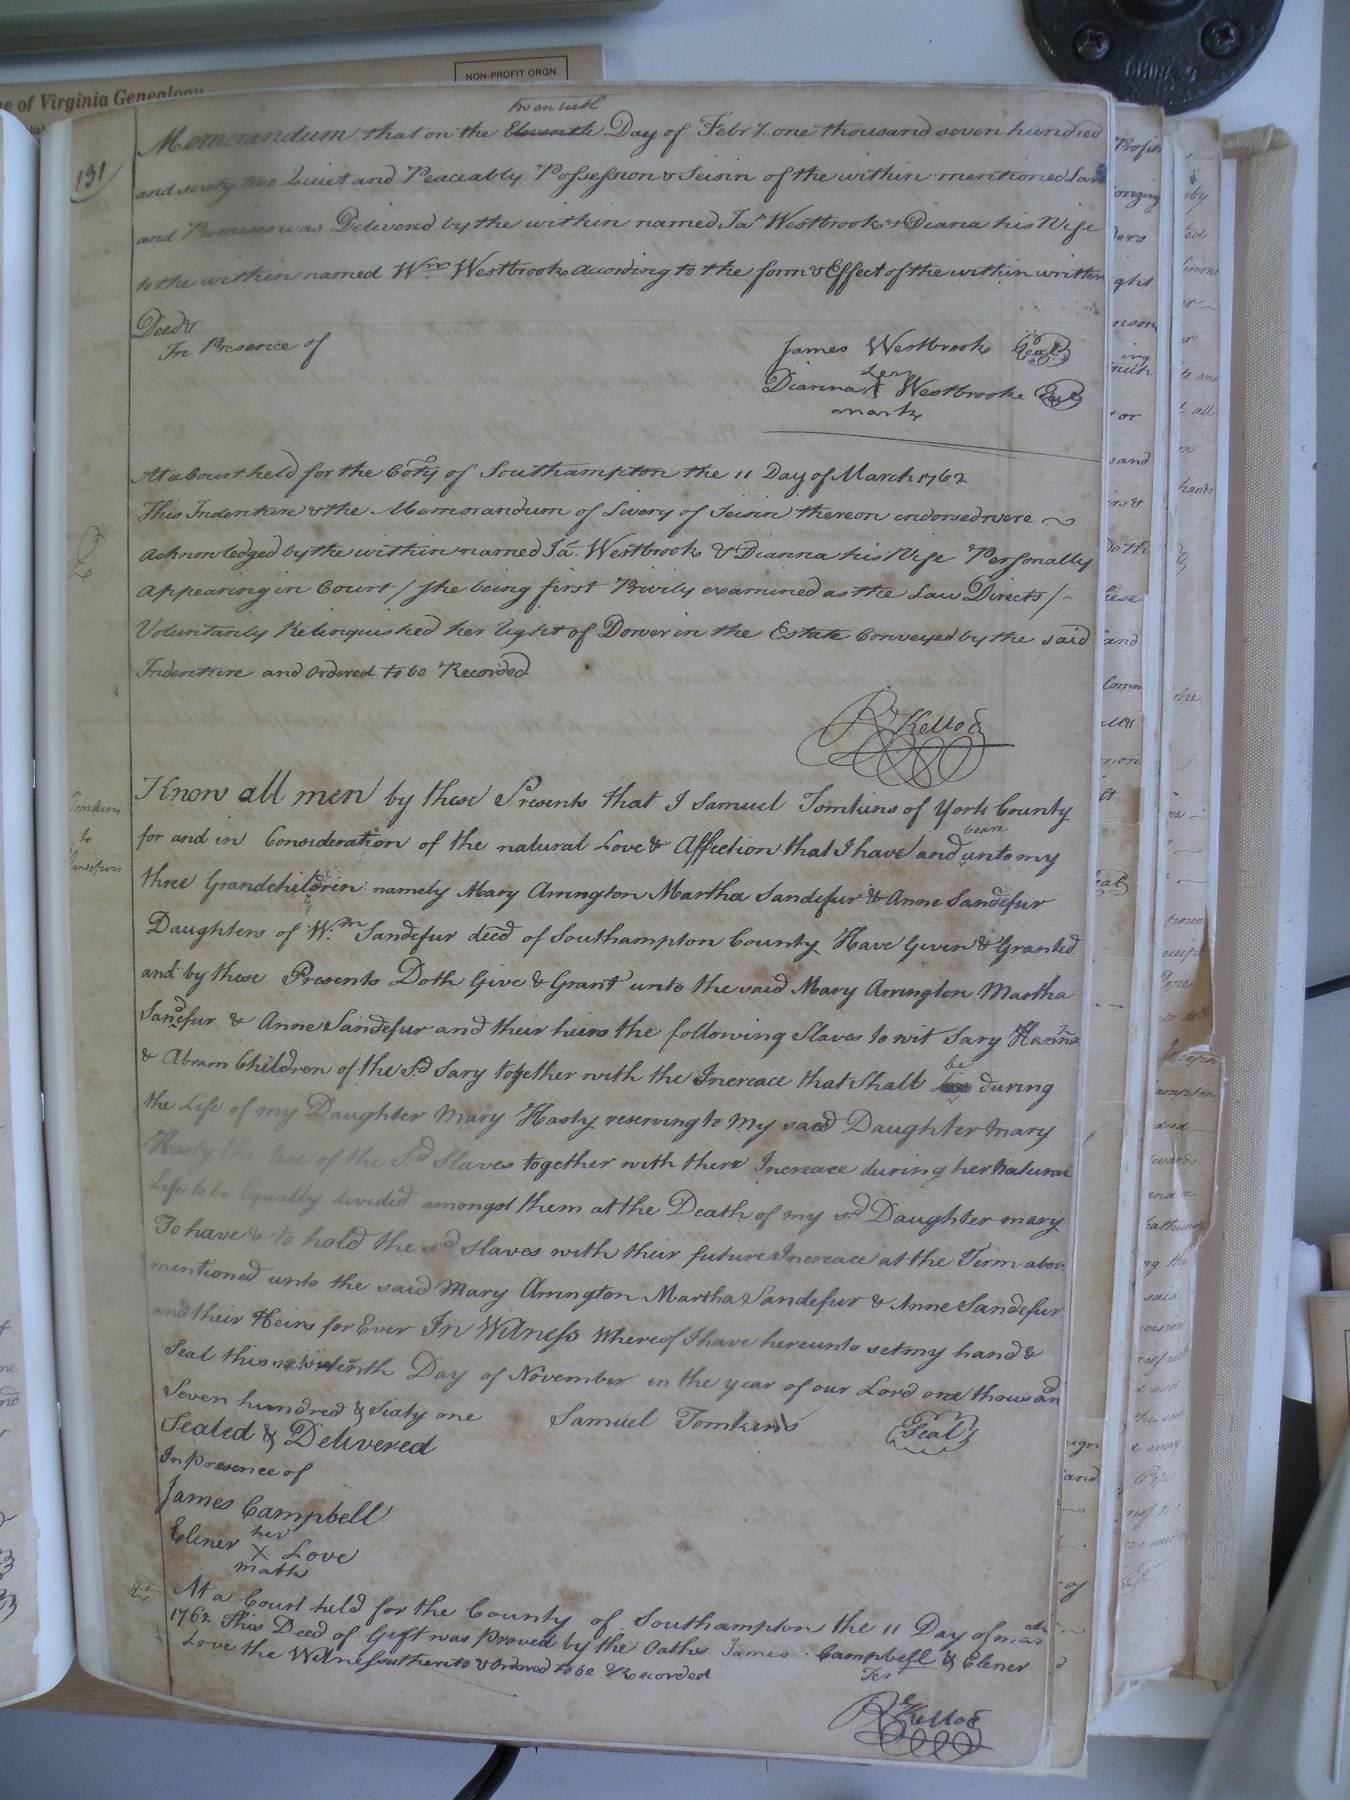 NON-PROFIT ORGN.
of Virginia Genealogy
131
twentieth
Memorandum that on the Eleventh Day of Febry. one thousand seven hundred
and sixty two Quiet and Peaceably Possession & Seisin of the within mentioned Lan
and Premises was Delivered by the within named Jas Westbrook & Diana his Wife
to the within named Wm Westbrook According to the form & Effect of the within written
Deed
In Presence of
James Westbrook Seal
her
Dianna Westbrooke Seal
mark
At a Court held for the Coty of Southampton the 11 Day of March 1762
This Indenture & the Memorandum of Livery of Seisin thereon endorsed were
Acknowledged by the within named Ja. Westbrook & Dianna his Wife Personally
Appearing in Court / she being first Privily examined as the Law Directs /
Voluntarily Relinquished her Right of Dower in the Estate Conveyed by the said
Indenture and Ordered to be Recorded
Rd Kelloe
Tomkins
to
Sandefurs
Know all men by these Presents that I Samuel Tomkins of York County
for and in Consideration of the natural Love & Affection that I have and bear unto my
three Grandchildren namely Mary Arrington Martha Sandefur & Anne Sandefur
Daughters of Wm Sandefur deed of Southampton County Have Given & Granted
and by these Presents Doth Give & Grant unto the said Mary Arrington Martha
Sandefur & Anne Sandefur and their heirs the following Slaves to wit Sary Hanna
& Abram Children of the Sd Sary together with the Increace that Shall be during
the Life of my Daughter Mary Hasty reserving to My said Daughter Mary
Hasty the Use of the Sd Slaves together with there Increace during her Natural
Life to be Equally divided amongst them at the Death of my sd Daughter mary
To have & to hold the sd slaves with their future Increace at the Term abov
mentioned unto the said Mary Arrington Martha Sandefur & Anne Sandefur
and their Heirs for Ever In Witness whereof I have hereunto set my hand &
Seal this Day of November in the year of our Lord one thousand
Seven hundred & Sixty one Samuel Tomkins Seal
Sealed & Delivered
In presence of
James Campbell
her
Elener X Love
mark
At a Court held for the County of Southampton the 11 Day of March
1762 This Deed of Gift was Proved by the Oaths James Campbell & Elener
Love the Witnesses thereto & Ordered to be Recorded
Tes
Rd Kelloe